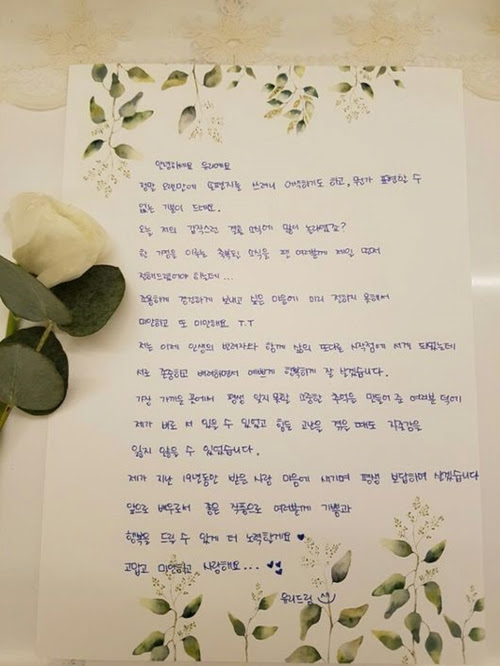 안녕하세요 유리에요
정말 오랜만에 손편지를 쓰려니 어색하기도 하고, 뭔가 표현할 수
없는 기분이 드네요.
오늘 저의 갑작스런 결혼 소식에 많이 놀라셨죠?
한 가정을 이루는 축복된 소식을 팬 여러분께 제일 먼저
전해드렸어야 하는데...
조용하게 경건하게 보내고 싶은 마음에 미리 전하지 못해서
미안하고 또 미안해요 T.T
저는 이제 인생의 반려자와 함께 삶의 또다른 시작점에 서게 되었는데
서로 존중하고 배려하면서 예쁘게 행복하게 잘 살겠습니다.
가장 가까운 곳에서 평생 잊지 못할 소중한 추억을 만들어 준 여러분 덕에
제가 바로 서 있을 수 있었고 힘든 고난을 겪을 때도 자존감을
잃지 않을 수 있었습니다.
제가 지난 19년동안 받은 사랑 마음에 새기며 평생 보답하며 살겠습니다
앞으로 배우로서 좋은 작품으로 여러분께 기쁨과
행복을 드릴 수 있게 더 노력할게요 ♥
고맙고 미안하고 사랑해요... ♥♥♥
유리드림